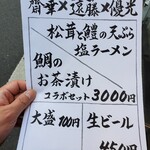 齊華×遠藤×優光
松茸と鱧の天ぷら
塩ラーメン
鯛の
お茶漬け
コラボセット3000円
大盛100円
生ビール
450円